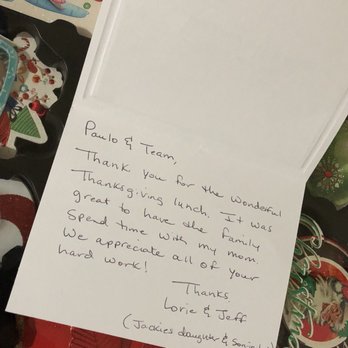 Paulo & Team,
Thank you for the wonderful
Thanksgiving lunch. It was
great to have the family
spend time with my mom.
We appreciate all of your
hard work!
Thanks,
Lorie & Jeff
(Jackies daughter &